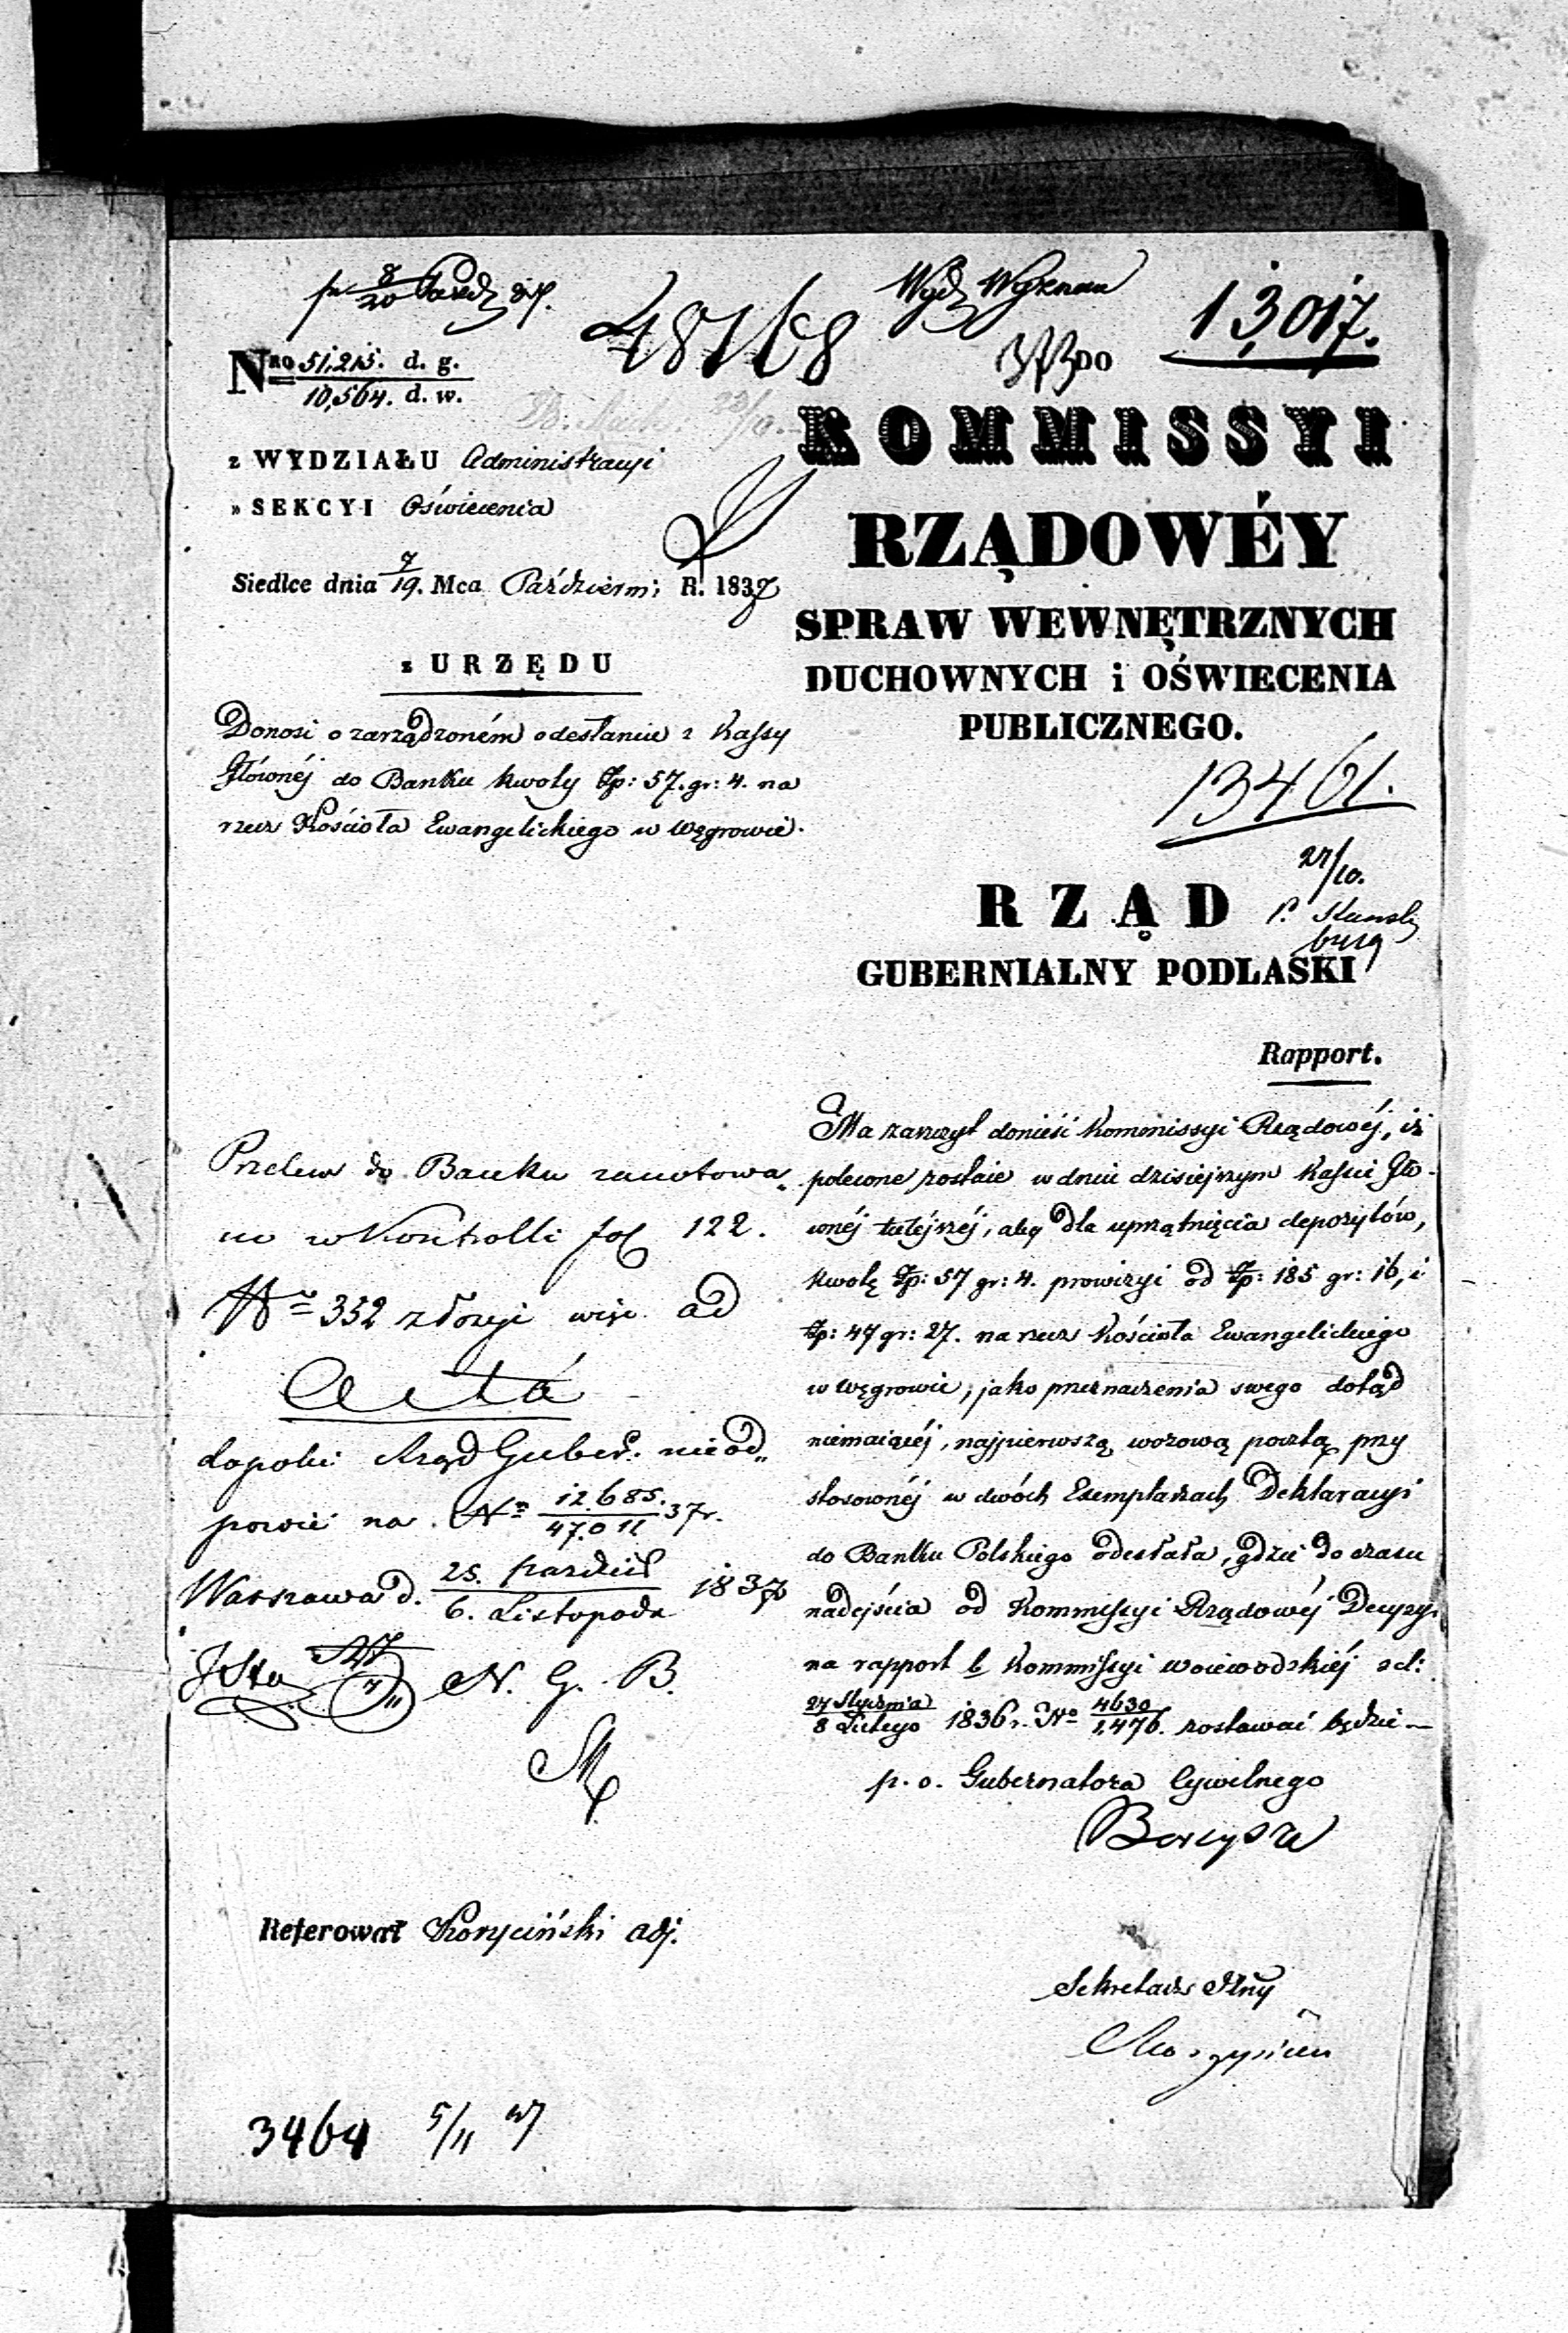 48168
Wydz Wyznań
13,017.
Nro 51,215. d. g.
10,564. d. w.
DO
KOMMISSYI
RZĄDOWÉY
SPRAW WEWNĘTRZNYCH
DUCHOWNYCH i OŚWIECENIA
PUBLICZNEGO.
z WYDZIAŁU Administracyi
» SEKCYI Oświecenia
Siedlce dnia 7/19. Mca Październ: R. 1837
z URZĘDU
Donosi o zarządzoném odesłaniu z Kassy
Głównéj do Banku kwoty Złp: 57. gr: 4. na
rzecz Kościoła Ewangelickiego w Węgrowie.
13461.
27/10.
RZĄD
GUBERNIALNY PODLASKI
Rapport.
Ma zaszczyt donieść Kommissyi Rządowéj, iż
polecone zostaie w dniu dzisiejszym Kassie Głó-
wnéj tutejszéj, aby dla uprzątnięcia depozytów,
kwotę Złp: 57 gr: 4. prowizyi od Złp: 185 gr: 16, i
Złp: 47 gr: 27. na rzecz Kościoła Ewangelickiego
w Węgrowie, jako przeznaczenia swego dotąd
niemaiącéj, najpierwszą wozową pocztą przy
stosownéj w dwóch Exemplarzach Deklaracyi
do Banku Polskiego odesłała, gdzie do czasu
nadejścia od Kommissyi Rządowéj Decyzyi
na rapport b Kommissyi Woiewodzkiéj z d:
27 Stycznia/8 Lutego 1836 r. No 4630/1,476. zostawać będzie
p. o. Gubernatora Cywilnego
Sekretarz Jlny
Przelew do Banku zanotowa„
no w Kontrolli fol 122.
Nr 352 złożyć więc ad
Acta
dopóki Rząd Guber: nie od„
powie na No 12.685./47.011 37 r.
Warszawa d. 25. Paździer/6. Listopada 1837
N. G. B.
Referował Koryciński adj.
3464 5/11